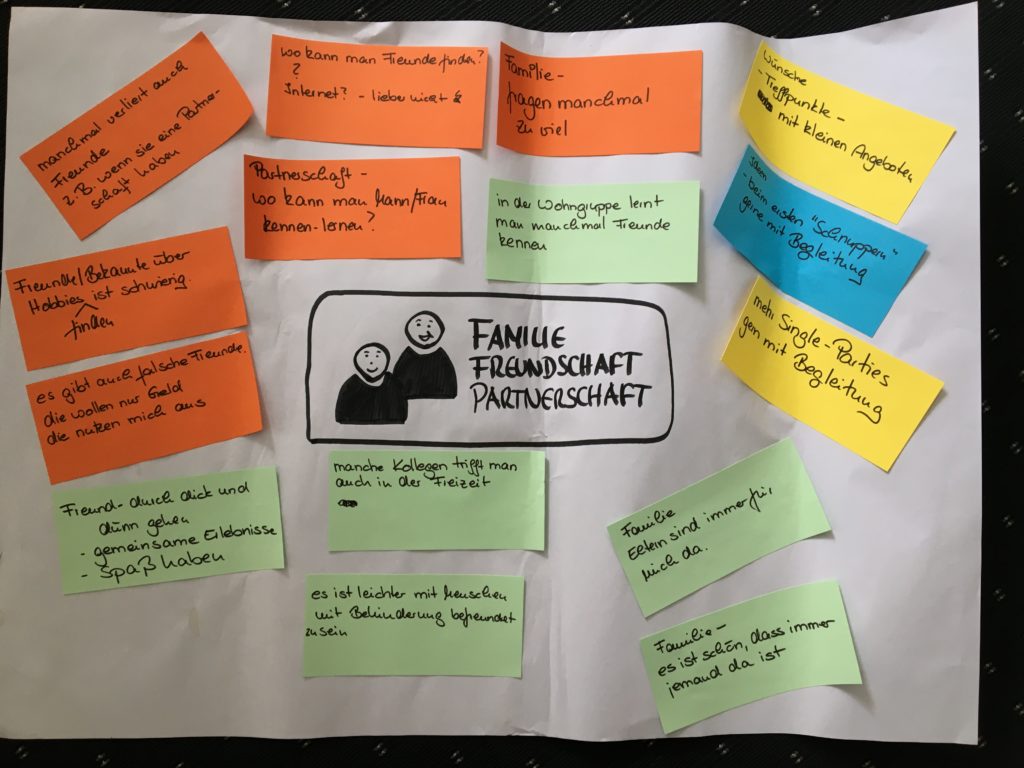 manchmal verliert auch
Freunde
z.B. wenn sie eine Partner-
schaft haben
wo kann man Freunde finden?
?
Internet? - lieber nicht
Familie -
fragen manchmal
zu viel
Wünsche
- Treffpunkte -
mit kleinen Angeboten
Partnerschaft -
wo kann man Mann/Frau
kennen-lernen?
in der Wohngruppe lernt
man manchmal Freunde
kennen
- beim ersten "Schnuppern"
gerne mit Begleitung
Freunde/Bekannte über
Hobbies ist schwierig
finden
mehr Single-Parties
gern mit Begleitung
FAMILIE
FREUNDSCHAFT
PARTNERSCHAFT
es gibt auch falsche Freunde.
die wollen nur Geld
die nutzen mich aus
Freund - durch dick und
dünn gehen
- gemeinsame Erlebnisse
- Spaß haben
manche Kollegen trifft man
auch in der Freizeit
Familie
Eltern sind immer für
mich da.
es ist leichter mit Menschen
mit Behinderung befreundet
zu sein
Familie -
es ist schön, dass immer
jemand da ist